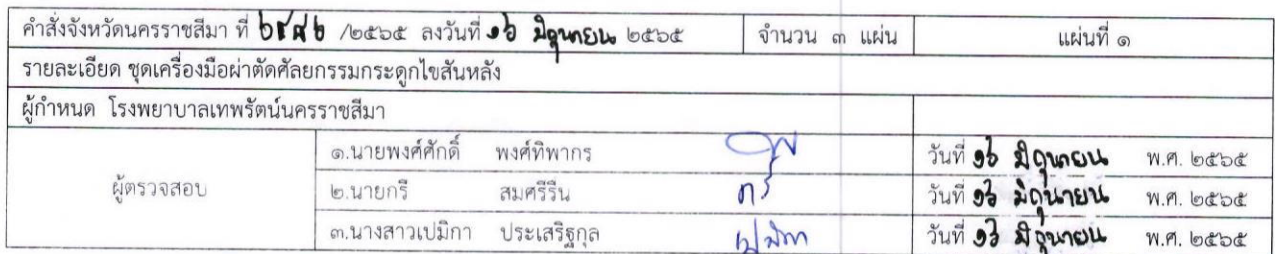 คำสั่งจังหวัดนครราชสีมา ที่ ๖๙๘๖ /๒๕๖๕ ลงวันที่ ๑๖ มิถุนายน ๒๕๖๕ จำนวน ๓ แผ่น แผ่นที่ ๑
รายละเอียด ชุดเครื่องมือผ่าตัดศัลยกรรมกระดูกไขสันหลัง
ผู้กำหนด โรงพยาบาลเทพรัตน์นครราชสีมา
ผู้ตรวจสอบ
๑.นายพงศ์ศักดิ์ พงศ์ทิพากร วันที่ ๑๖ มิถุนายน พ.ศ. ๒๕๖๕
๒.นายกรี สมศรีรื่น กรี วันที่ ๑๖ มิถุนายน พ.ศ. ๒๕๖๕
๓.นางสาวเปมิกา ประเสริฐกุล เปมิกา วันที่ ๑๖ มิถุนายน พ.ศ. ๒๕๖๕